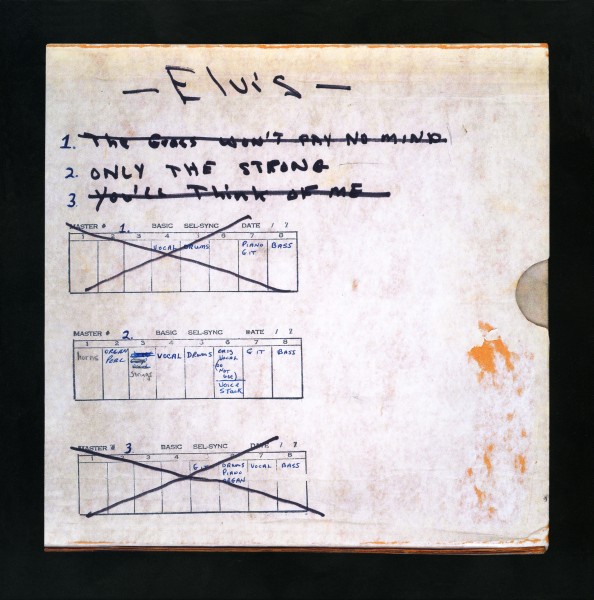 — Elvis —
1. The Grass Won't Pay No Mind
2. ONLY THE STRONG
3 You'll Think OF ME
MASTER # 1. BASIC SEL-SYNC DATE / ?
1 2 3 4 5 6 7 8
VOCAL DRUMS PIANO GIT BASS
MASTER # 2. BASIC SEL-SYNC DATE / ?
1 2 3 4 5 6 7 8
horns ORGAN PERC Strings VOCAL DRUMS ORIG VOCAL (DO NOT USE) VOICE STACK GIT BASS
MASTER # 3 BASIC SEL-SYNC DATE / ?
1 2 3 4 5 6 7 8
GIT DRUMS PIANO ORGAN VOCAL BASS